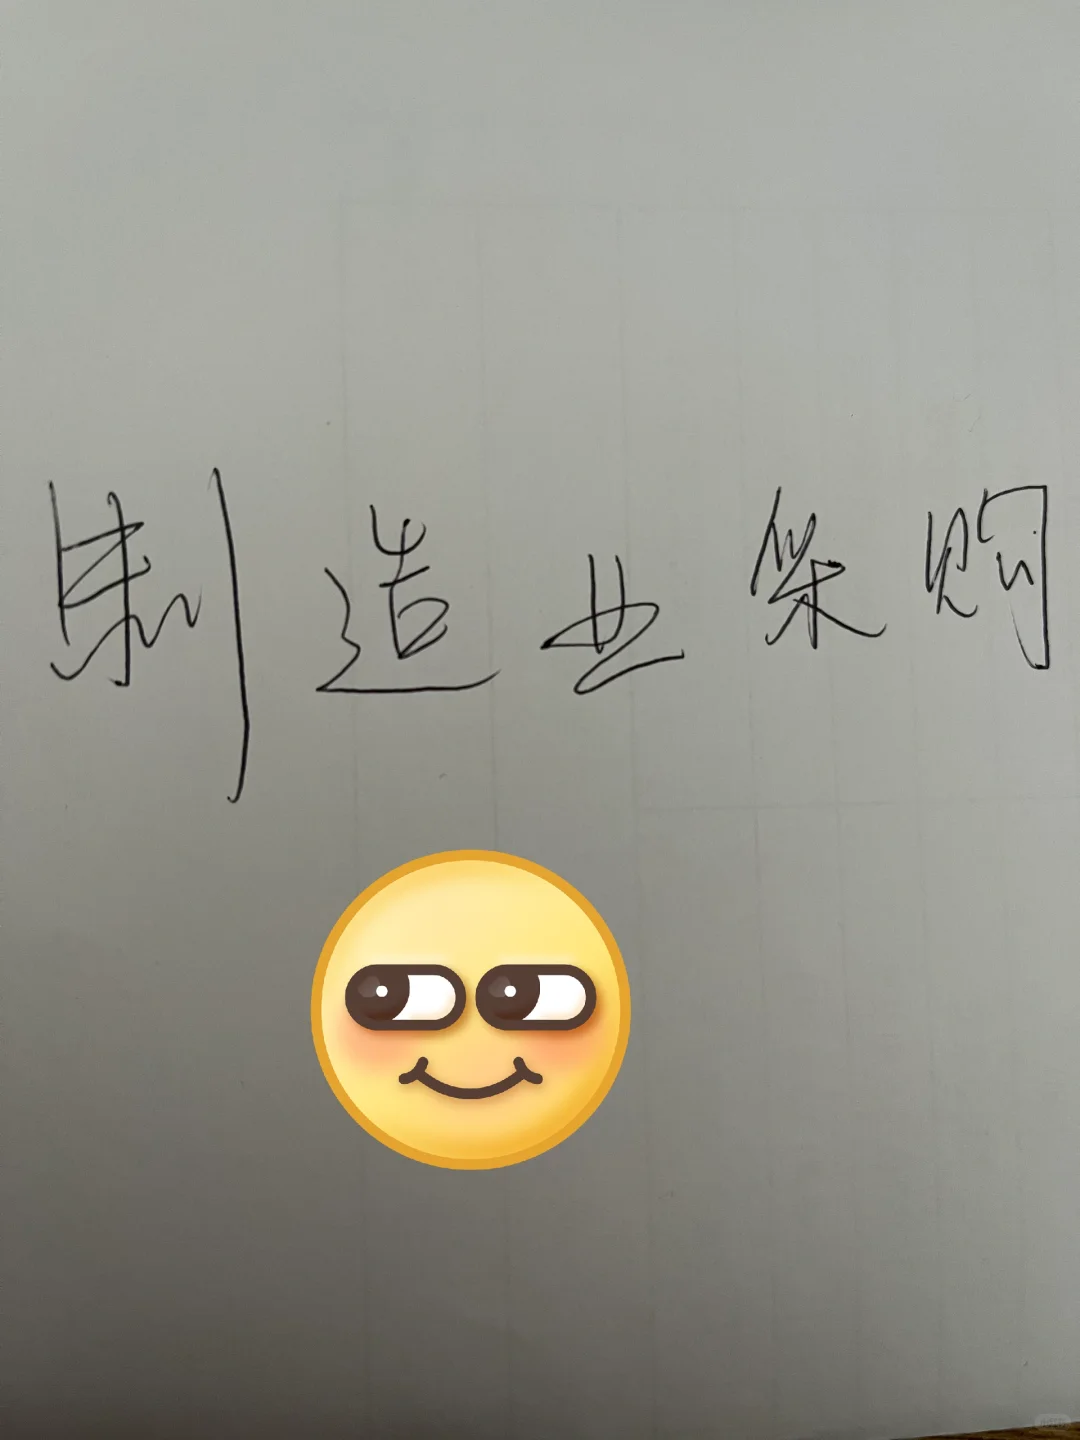 制造业采购